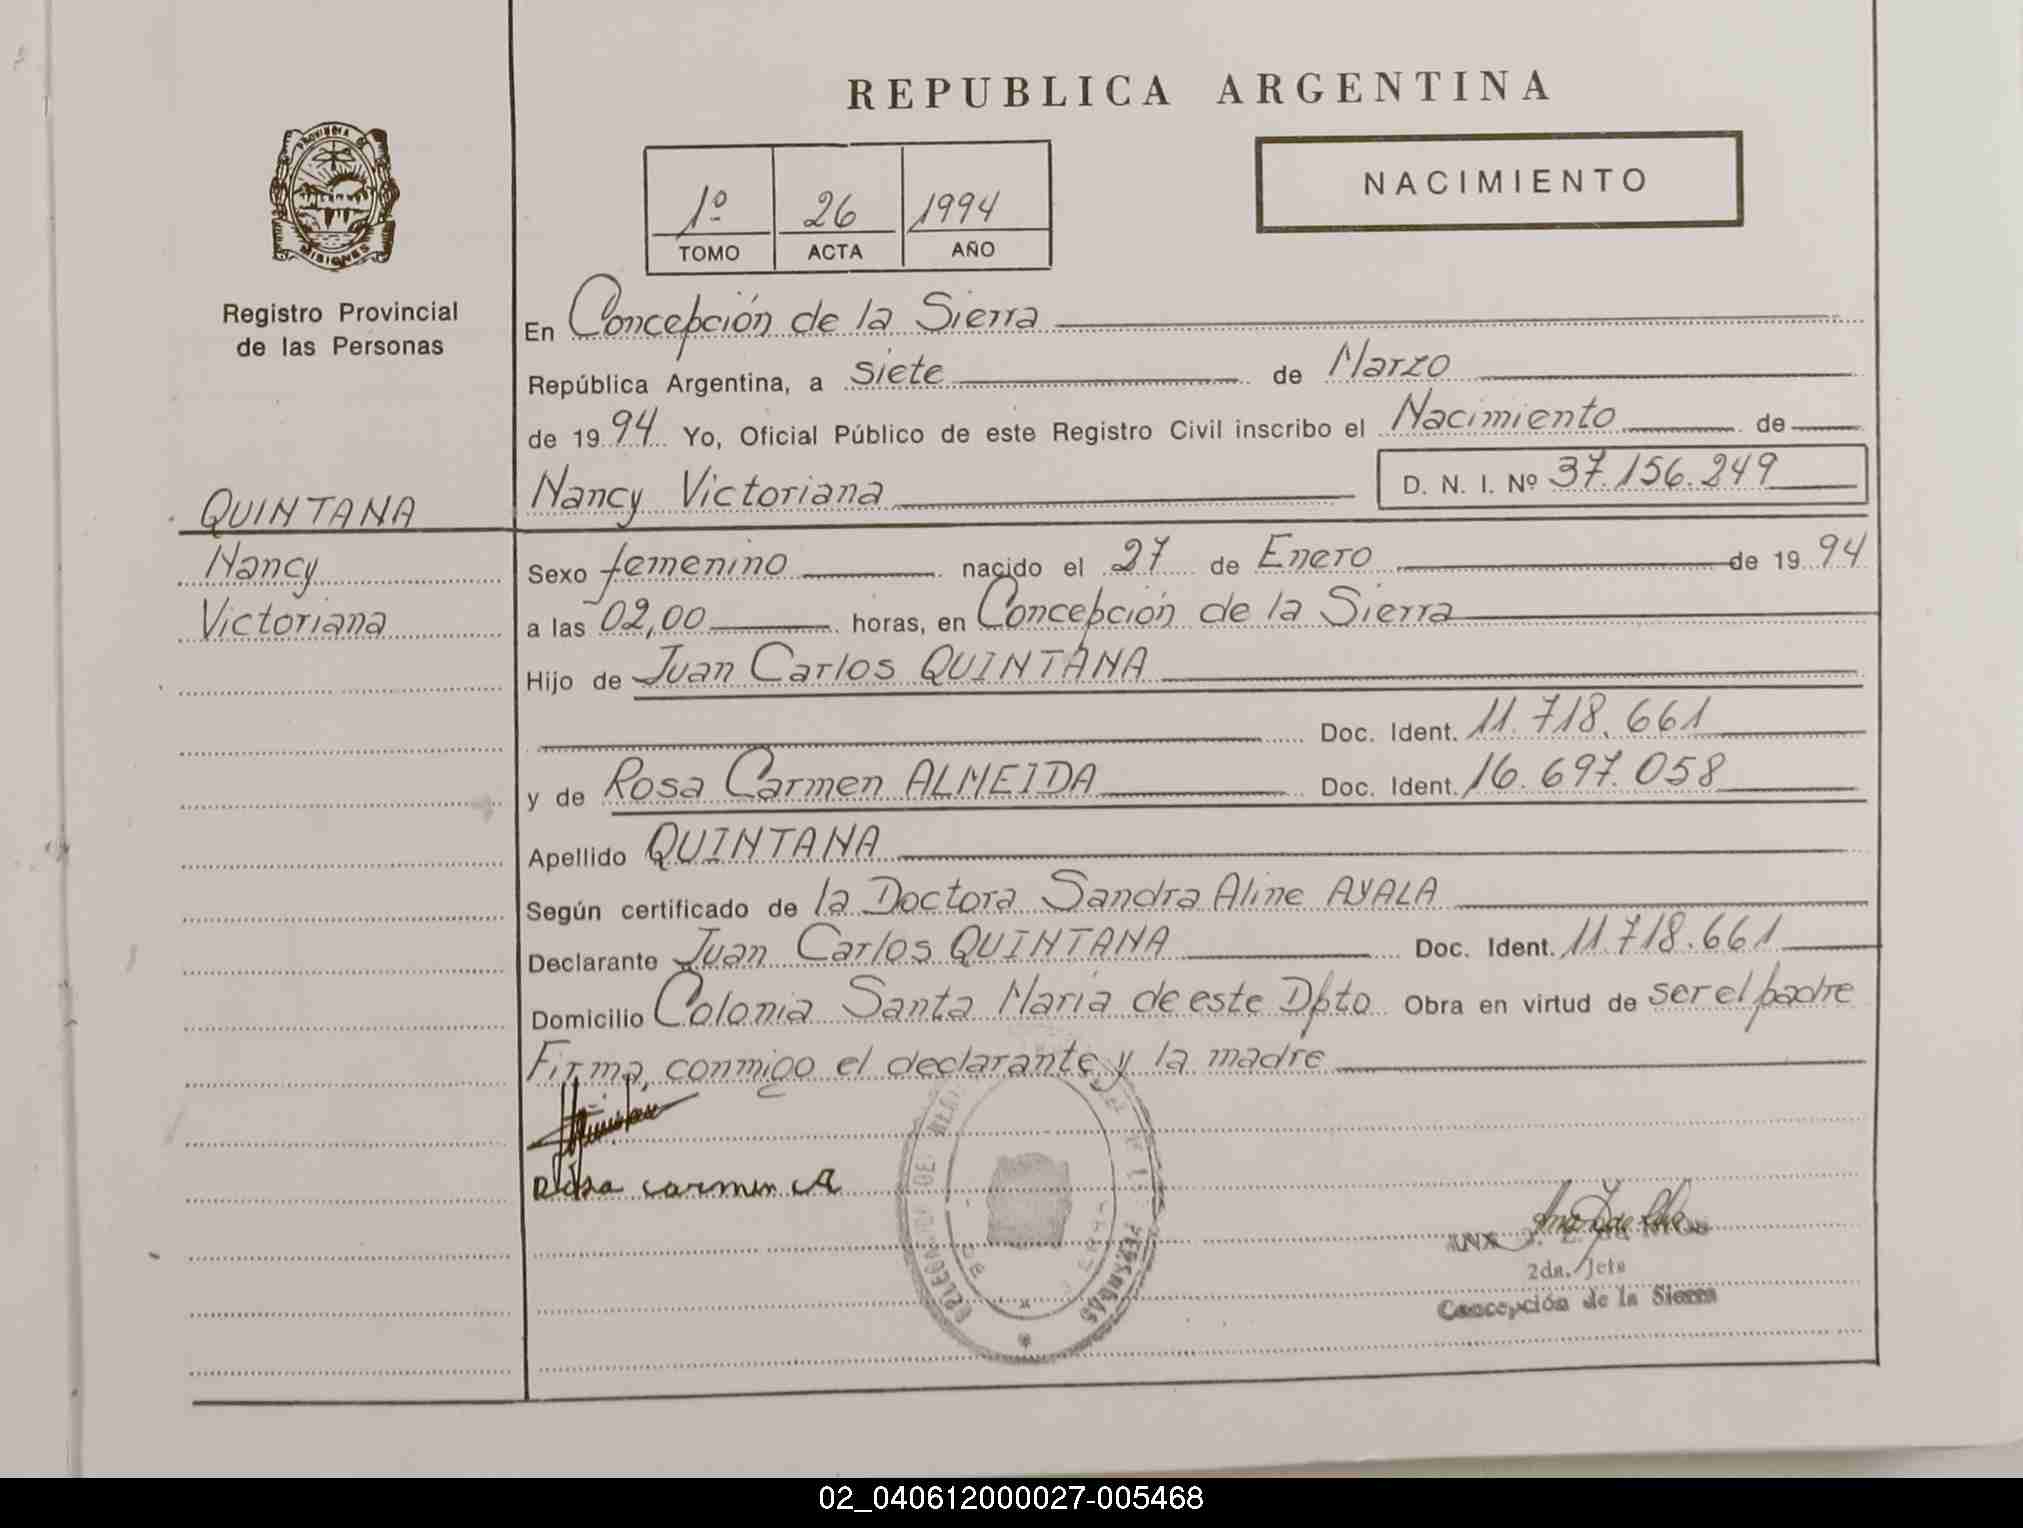 REPUBLICA ARGENTINA
PROVINCIA DE
MISIONES
Registro Provincial
de las Personas
1º 26 1994
TOMO ACTA AÑO
NACIMIENTO
En Concepción de la Sierra
República Argentina, a siete de Marzo
de 1994 Yo, Oficial Público de este Registro Civil inscribo el Nacimiento de
Nancy Victoriana D. N. I. Nº 37.156.249
QUINTANA
Nancy
Victoriana
Sexo femenino nacido el 27 de Enero de 1994
a las 02,00 horas, en Concepción de la Sierra
Hijo de Juan Carlos QUINTANA
Doc. Ident. 11.718.661
y de Rosa Carmen ALMEIDA Doc. Ident. 16.697.058
Apellido QUINTANA
Según certificado de la Doctora Sandra Aline AYALA
Declarante Juan Carlos QUINTANA Doc. Ident. 11.718.661
Domicilio Colonia Santa Maria de este Dpto Obra en virtud de ser el padre
Firma, conmigo el declarante y la madre
Rosa Carmen A
PERSONAS
2da. Jefe
Concepción de la Sierra
02_040612000027-005468